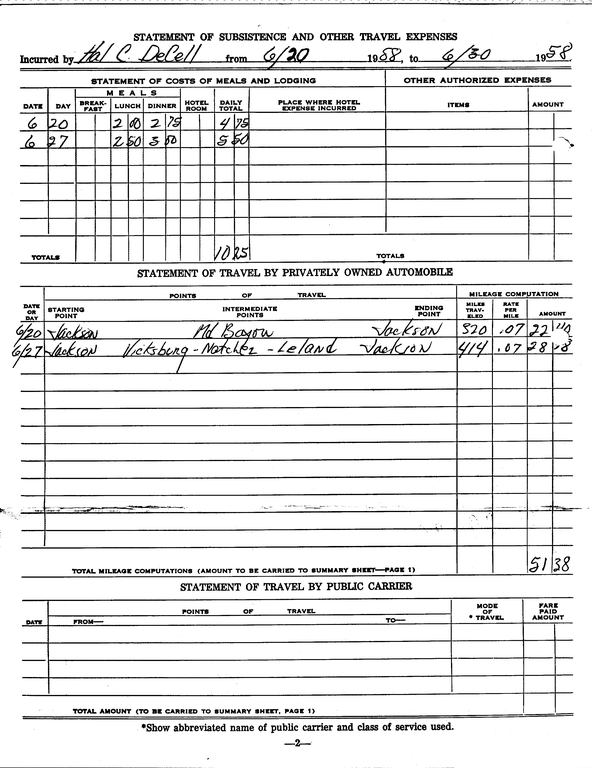 STATEMENT OF SUBSISTENCE AND OTHER TRAVEL EXPENSES
Incurred by Hal C. DeCell from 6/20 1958, to 6/30 1958.
STATEMENT OF COSTS OF MEALS AND LODGING OTHER AUTHORIZED EXPENSES
MEALS
DATE DAY BREAK-FAST LUNCH DINNER HOTEL ROOM DAILY TOTAL PLACE WHERE HOTEL EXPENSE INCURRED ITEMS AMOUNT
6 20 2 00 2 75 4 75
6 27 2 50 3 00 5 50
TOTALS 10 25 TOTALS
STATEMENT OF TRAVEL BY PRIVATELY OWNED AUTOMOBILE
POINTS OF TRAVEL MILEAGE COMPUTATION
DATE OR DAY STARTING POINT INTERMEDIATE POINTS ENDING POINT MILES TRAV-ELED RATE PER MILE AMOUNT
6/20 Jackson Md Bayou Jackson 320 .07 22
6/27 Jackson Vicksburg - Natchez - Leland Jackson 414 .07 28
TOTAL MILEAGE COMPUTATIONS (AMOUNT TO BE CARRIED TO SUMMARY SHEET—PAGE 1) 51 38
STATEMENT OF TRAVEL BY PUBLIC CARRIER
DATE POINTS OF TRAVEL MODE OF * TRAVEL FARE PAID AMOUNT
FROM— TO—
TOTAL AMOUNT (TO BE CARRIED TO SUMMARY SHEET, PAGE 1)
*Show abbreviated name of public carrier and class of service used.
—2—